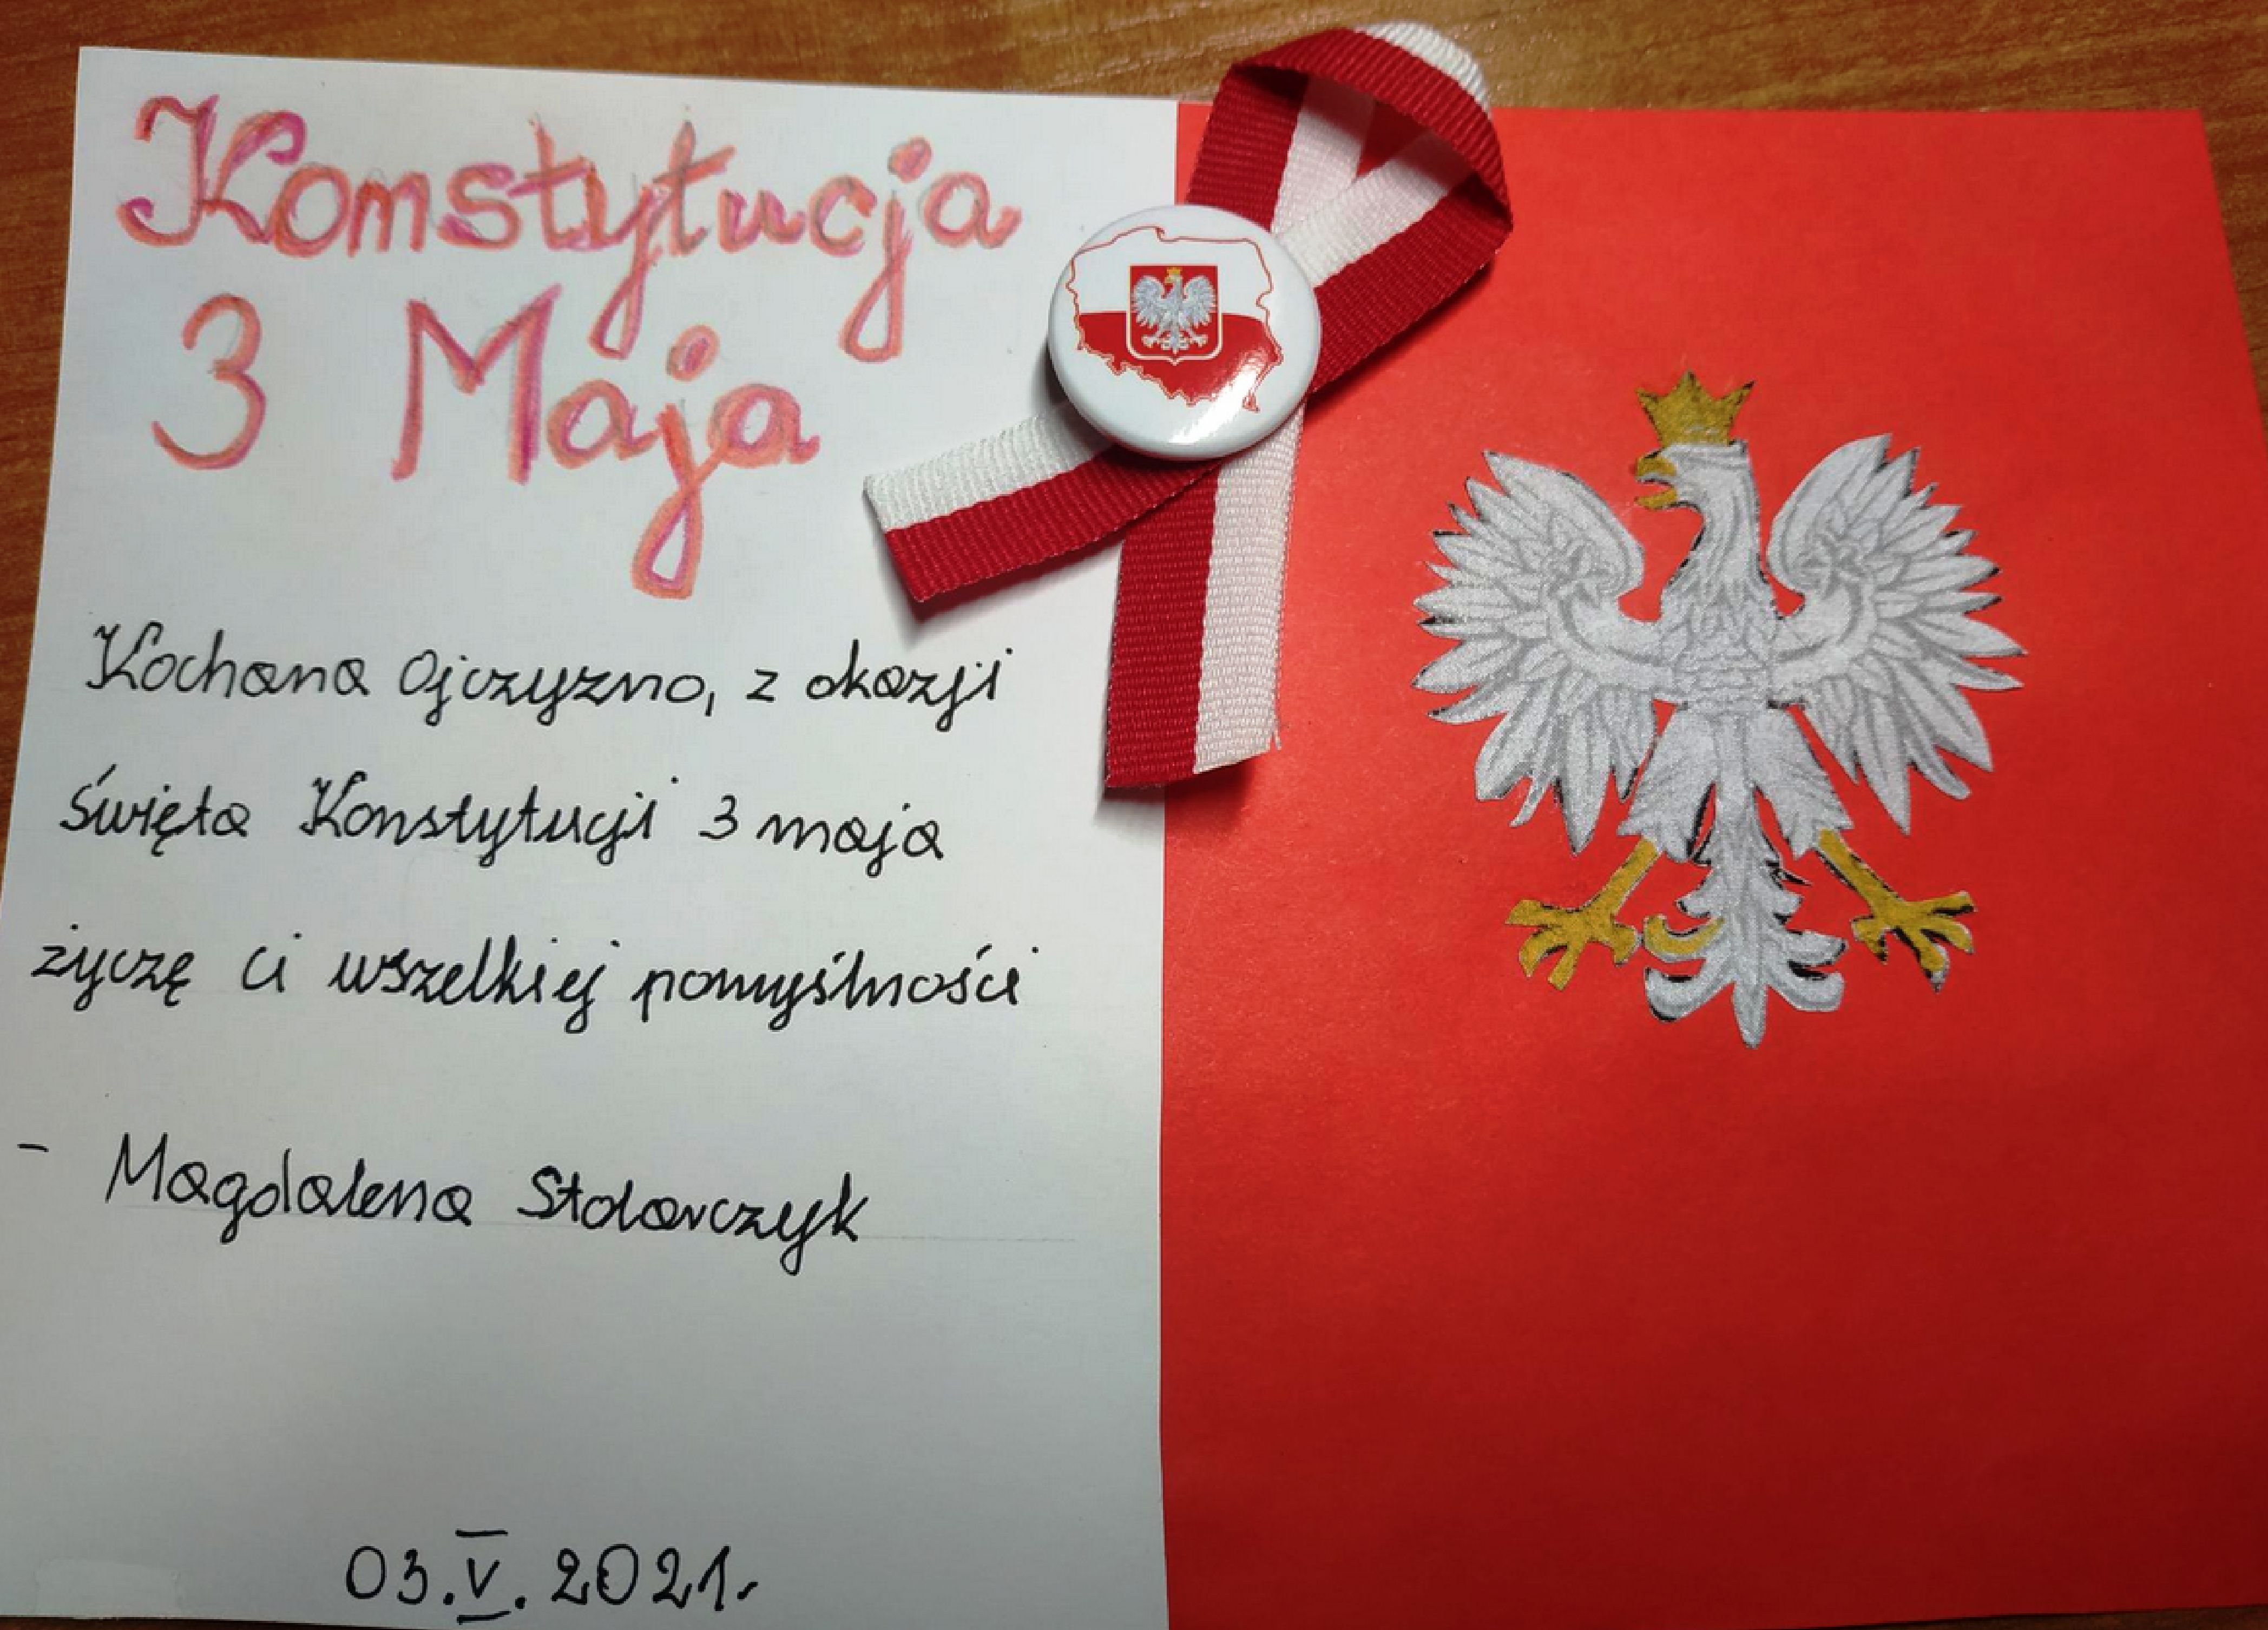 Konstytucja
3 Maja
Kochana Ojczyzno, z okazji
święta Konstytucji 3 maja
życzę ci wszelkiej pomyślności
- Magdalena Stolarczyk
03.V.2021r